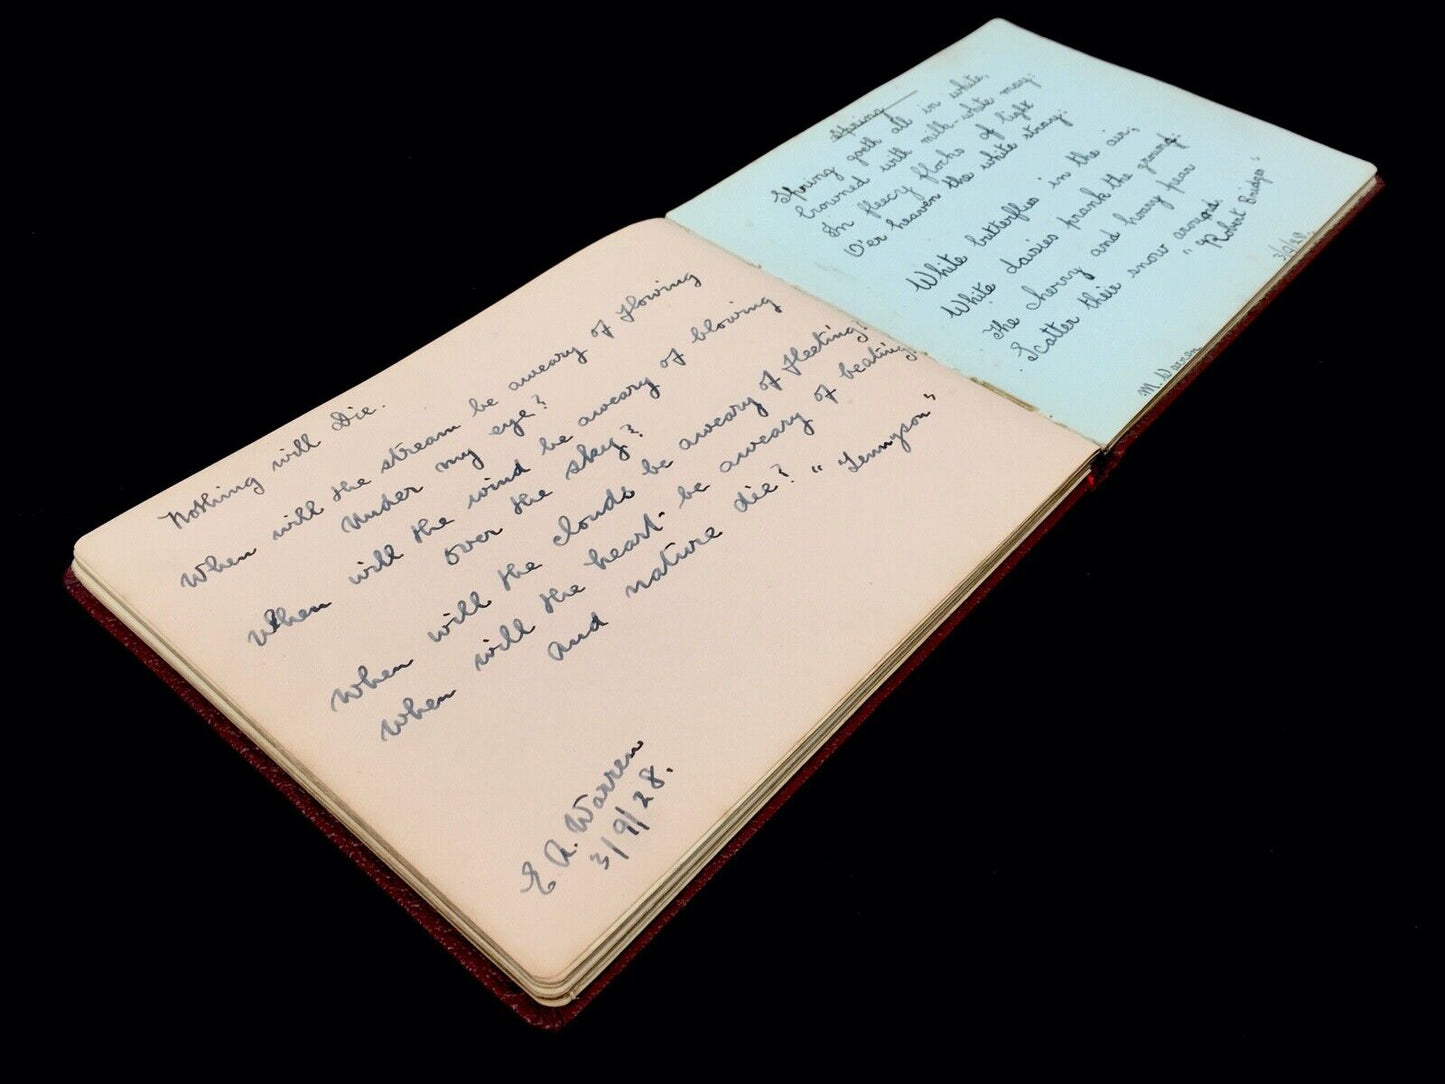 Nothing will Die.
When will the stream be aweary of flowing
Under my eye?
When will the wind be aweary of blowing
Over the sky?
When will the clouds be aweary of fleeting?
When will the heart be aweary of beating?
And nature die? "Tennyson"
E A. Warren
3/9/28.
Spring
Spring goeth all in white,
Crowned with milk-white may:
In fleecy flocks of light
O'er heaven the white stray:
White butterflies in the air;
White daisies prank the ground:
The cherry and hoary pear
Scatter their snow around.
"Robert Bridges"
M. Warren
3/9/28.